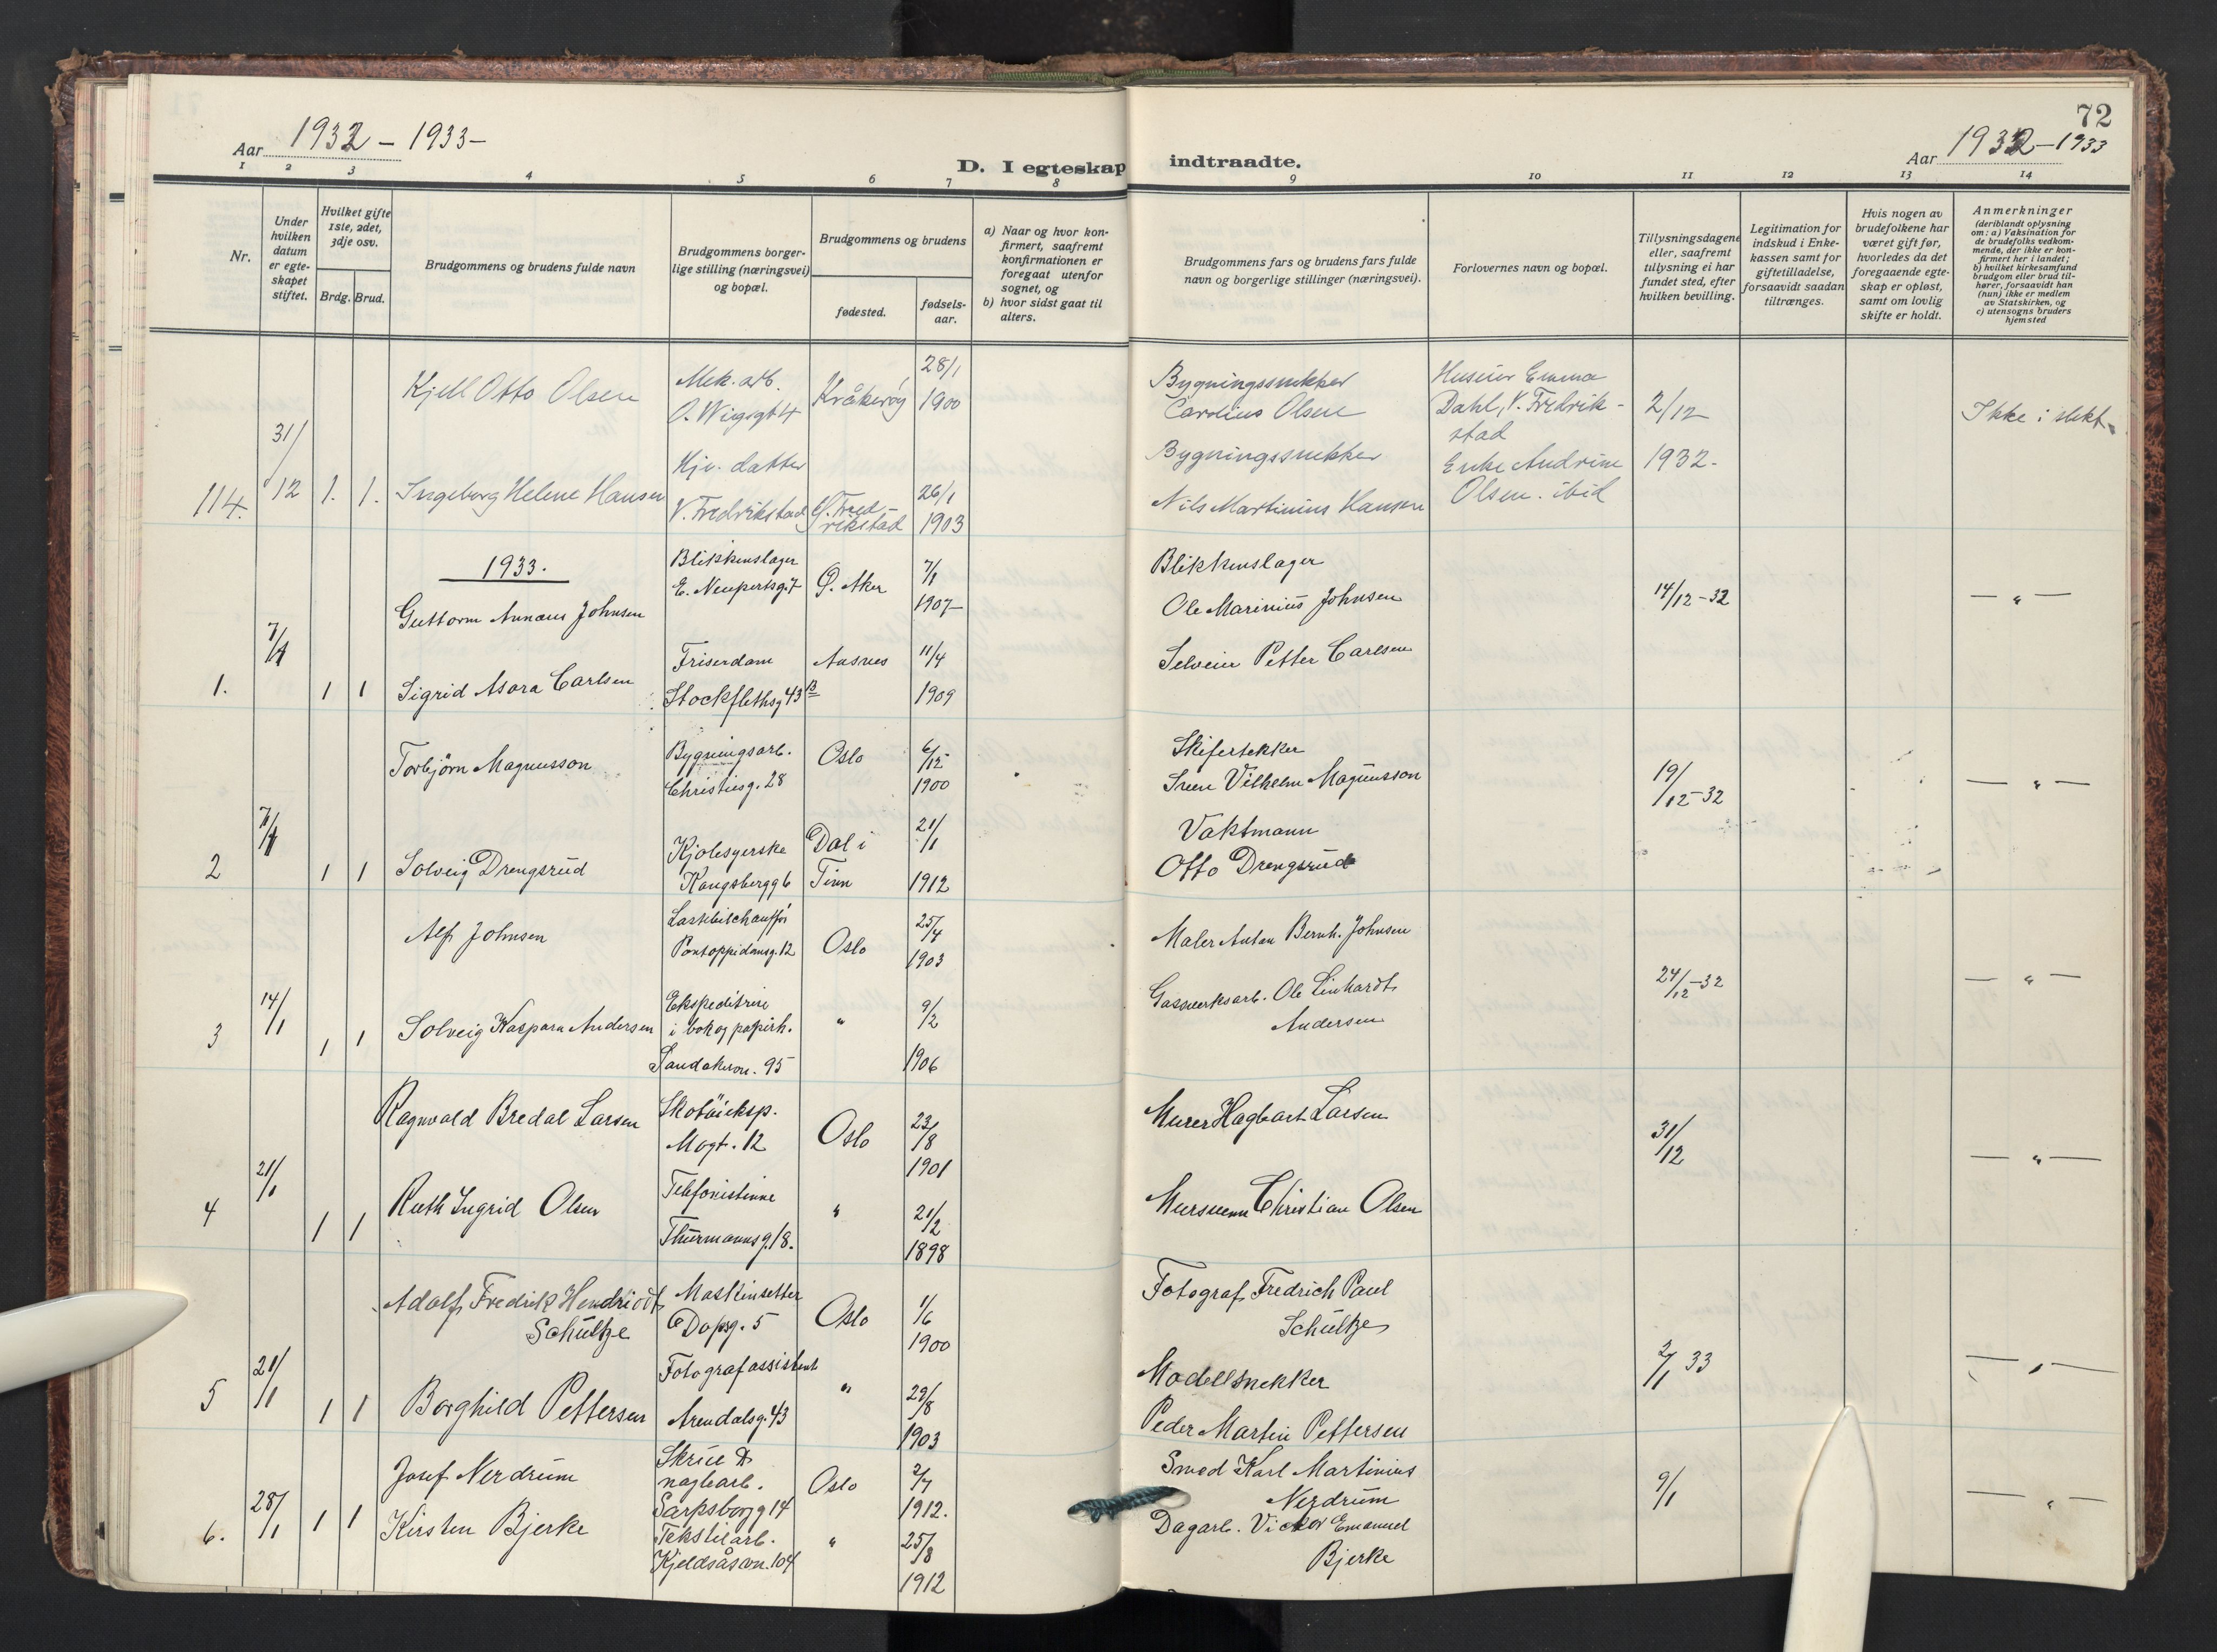 72
Aar 1932 - 1933 -
Aar 1932 - 1933
D. I egteskap indtraadte.
1 2 3 4 5 6 7 8 9 10 11 12 13 14
Nr.
Under
hvilken
datum
er egte-
skapet
stiftet.
Hvilket gifte
1ste, 2det,
3dje osv.
Brdg. Brud.
Brudgommens og brudens fulde navn
Brudgommens borger-
lige stilling (næringsvei)
og bopæl.
Brudgommens og brudens
fødested.
fødsels-
aar.
a) Naar og hvor kon-
firmert, saafremt
konfirmationen er
foregaat utenfor
sognet, og
b) hvor sidst gaat til
alters.
Brudgommens fars og brudens fars fulde
navn og borgerlige stillinger (næringsvei).
Forlovernes navn og bopæl.
Tillysningsdagene
eller, saafremt
tillysning ei har
fundet sted, efter
hvilken bevilling.
Legitimation for
indskud i Enke-
kassen samt for
giftetilladelse,
forsaavidt saadan
tiltrænges.
Hvis nogen av
brudefolkene har
været gift før,
hvorledes da det
foregaaende egte-
skap er opløst,
samt om lovlig
skifte er holdt.
Anmerkninger
(deriblandt oplysning
om: a) Vaksination for
de brudefolks vedkom-
mende, der ikke er kon-
firmert her i landet;
b) hvilket kirkesamfund
brudgom eller brud til-
hører, forsaavidt han
(hun) ikke er medlem
av Statskirken, og
c) utensogns bruders
hjemsted
114. 31/12 1. 1.
Kjell Otto Olsen
Mek. arb.
O. Wiigsgt 4
Kråkerøy
28/1
1900
Bygningssnekker
Carolius Olsen
Huseier Emma
Dahl, V. Fredrik-
stad
2/12
1932.
Ikke i slekt.
Ingeborg Helene Hansen
Hjv. datter
V. Fredrikstad
G. Fred-
rikstad
26/1
1903
Bygningssnekker
Nils Martinius Hansen
Enke Andrine
Olsen. ibid
1933.
1. 7/1 1 1
Guttorm Annæus Johnsen
Blikkenslager
E. Neupertsg. 7
Ø. Aker
7/8
1907
Blikkenslager
Ole Marinius Johnsen
14/12-32
— " —
Sigrid Asora Carlsen
Friserdam
Stockflethsg 43 B
Aasnes
11/4
1909
Selveier Petter Carlsen
2 7/1 1 1
Torbjörn Magnusson
Bygningsarb.
Christiesg. 28
Oslo
6/12
1900
Skifertekker
Sven Vilhelm Magnusson
19/12-32
— " —
Solveig Drengsrud
Kjolesyerske
Kongsbergg 6
Dal i
Tinn
21/1
1912
Vaktmann
Otto Drengsrud
3 14/1 1 1
Alf Johnsen
Lastebilchauffør
Pontoppidansg. 12
Oslo
25/4
1903
Maler Anton Bernh. Johnsen
24/12-32
— " —
Solveig Kaspara Andersen
Ekspeditrise
i bok og papirh.
Sandakerv. 95
"
9/2
1906
Gassverksarb. Ole Linhardt
Andersen
4 21/1 1 1
Ragnvald Bredal Larsen
Skotøieksp.
Mogt. 12
Oslo
23/8
1901
Murer Hagbart Larsen
31/12
— " —
Ruth Ingrid Olsen
Telefonistinne
Thurmannsg. 18.
"
21/2
1898
Mursvenn Christian Olsen
5 21/1 1 1
Adolf Fredrik Hendriodt
Schültze
Maskinsetter
Dopsg. 5
Oslo
1/6
1900
Fotograf Fredrich Paul
Schültze
2/1 33
— " —
Borghild Pettersen
Fotografassistent
Arendalsg. 43
"
29/8
1903
Modellsnekker
Peder Martin Pettersen
6. 28/1 1 1
Josef Nerdrum
Skrue &
naglearb.
Sarpsborgg 14
Oslo
2/7
1912.
Smed Karl Martinius
Nerdrum
9/1
— " —
Kirsten Bjerke
Tekstilarb.
Kjeldsåsvn. 104
"
25/8
1912
Dagarb. Victor Emanuel
Bjerke